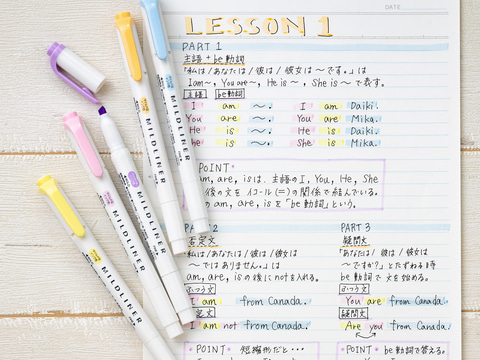 DATE
LESSON 1
PART 1
主語 + be動詞
「私は/あなたは/彼は/彼女は ～です。」は
I am～, You are～, He is～, She is～ で表す。
主語 be動詞
I am ～. I am Daiki.
You are ～. You are Mika.
He is ～. He is Daiki.
She is ～. She is Mika.
POINT
am, are, is は、主語の I, You, He, She
後の文をイコール(=)の関係で結んでいる。
am, are, is を「be動詞」という。
2
否定文
「私は/あなたは/彼は/彼女は
～ではありません。」は
am, are, is の後に not を入れる。
ふつう文
I am from Canada.
定文
I am not from Canada.
POINT 短縮形だと…
PART 3
疑問文
「あなたは/彼は/彼女は
～ですか?」とたずねる時
be動詞で文を始める。
ふつう文
You are from Canada.
疑問文
Are you from Canada.
POINT be動詞で答える。
MILDLINER
MILDLINER
MILDLINER
MILDLINER
MILDLINER